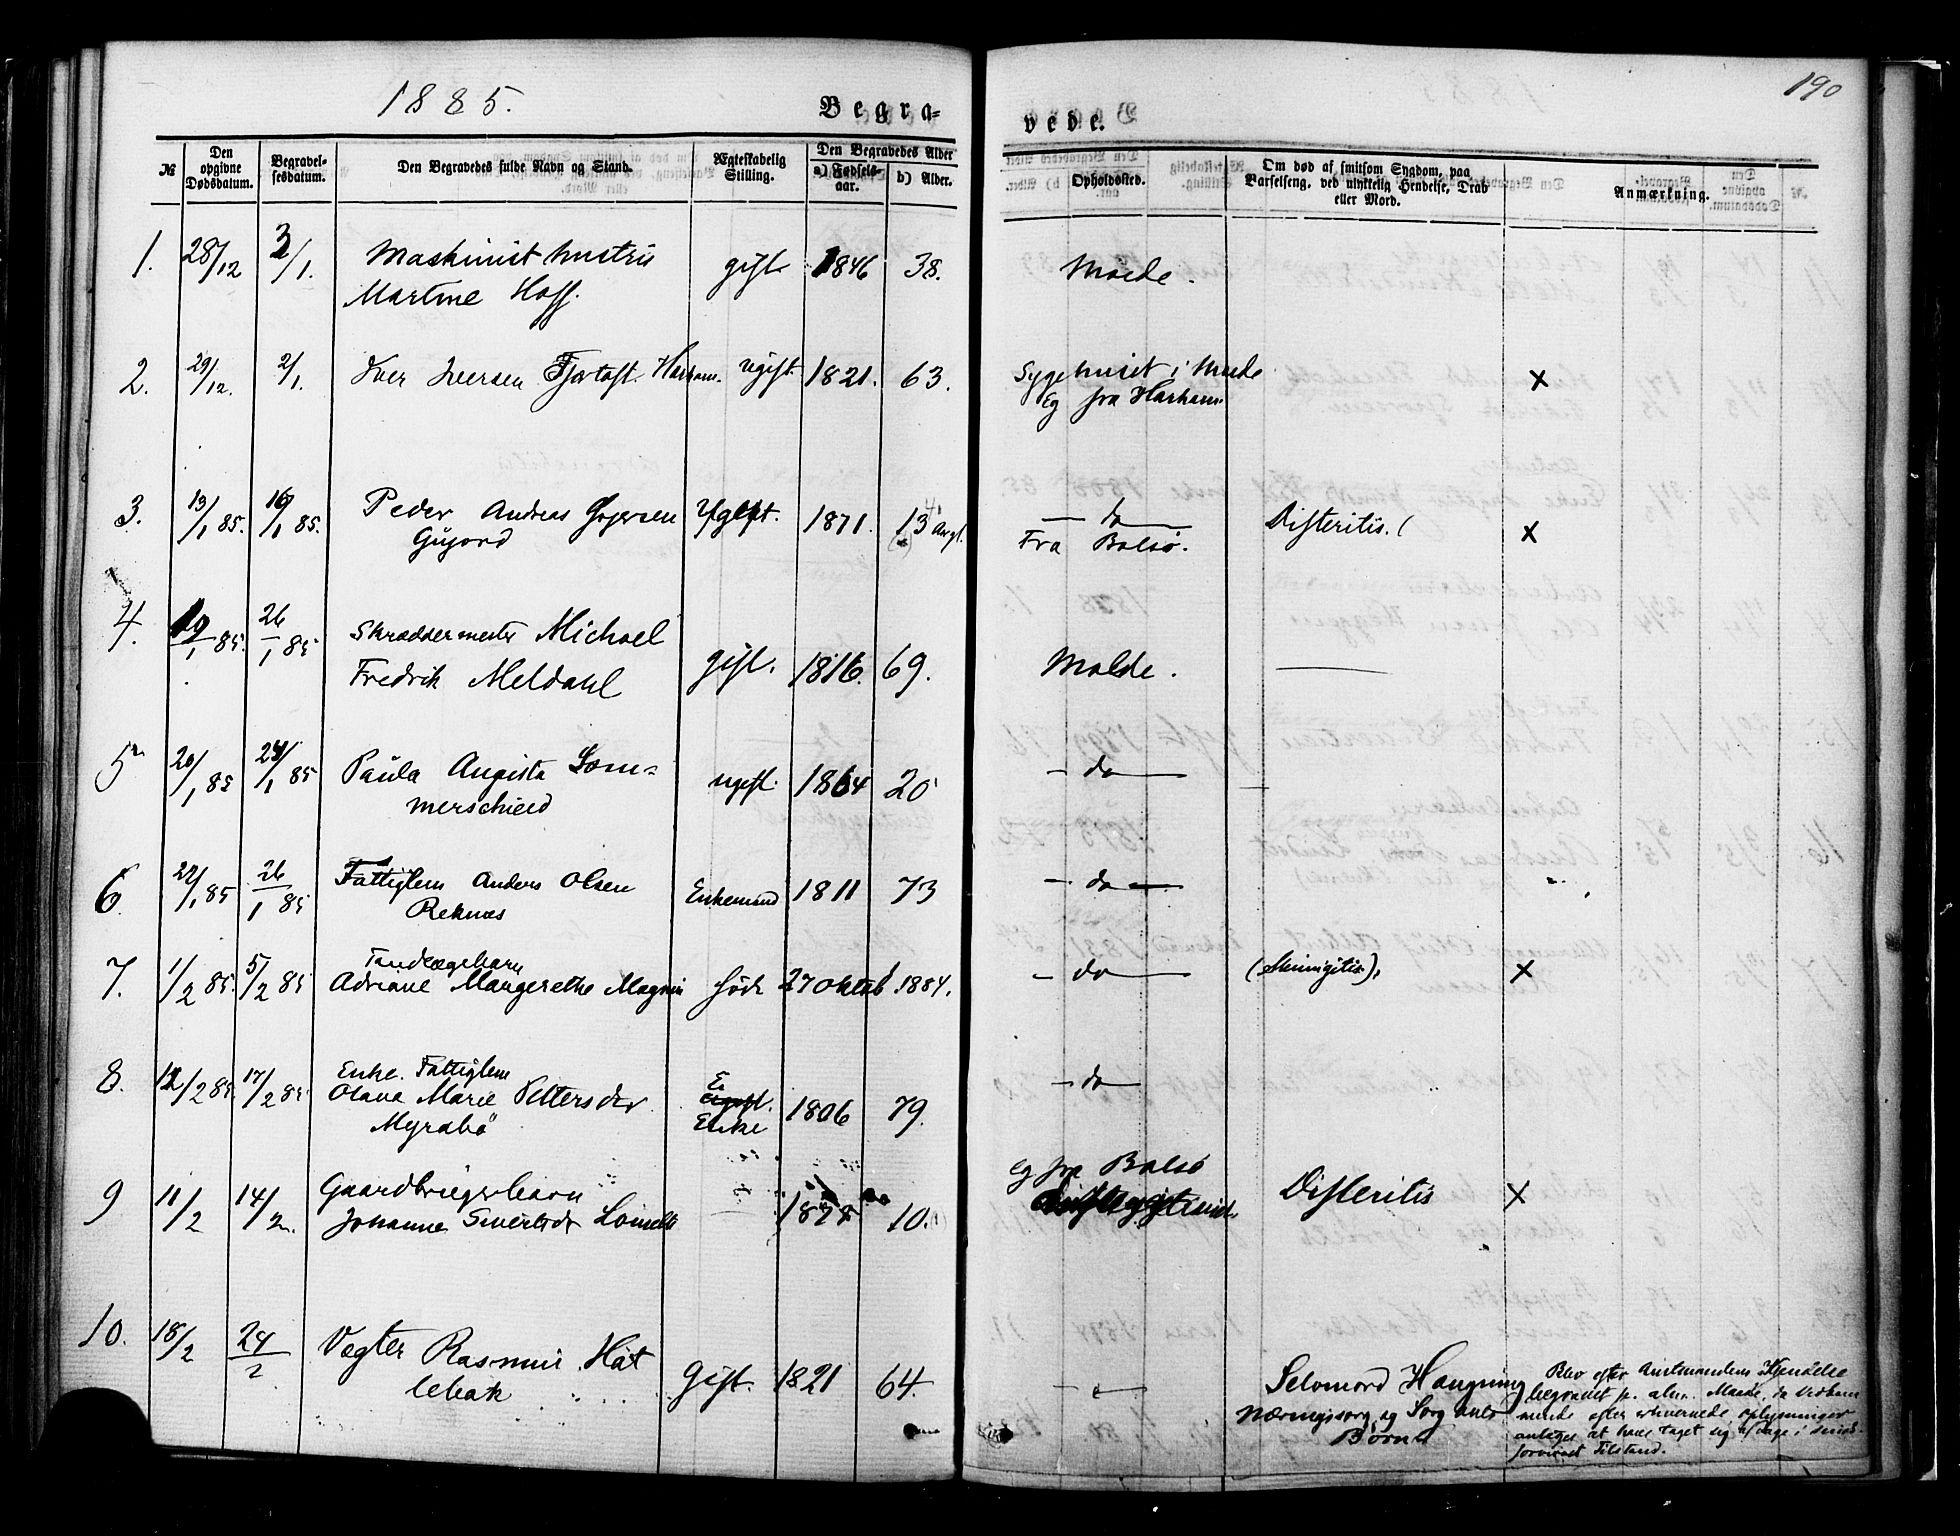 1885.
Begra=
vede.
190
№
Den opgivne Dødsdatum.
Begravel-sesdatum.
Den Begravedes fulde Navn og Stand.
Ægteskabelig Stilling.
Den Begravedes Alder
a) Fødsels-aar.
b) Alder.
Opholdssted.
Om død af smitsom Sygdom, paa Barselseng, ved ulykkelig Hendelse, Drab eller Mord.
Anmærkning.
1. 28/12 2/1. Maskinist hustru gift 1846 38. Molde.
Martine Hoff.
2. 29/12. 2/1. Iver Iversen Fjørtoft. Harham. ugift. 1821. 63. Sygehuset i Molde ×
Eg fra Harham
3. 13/1 85. 19/1 85. Peder Andreas 1871. 13 — do — Difteritis. ×
Fra Bolsø.
4. 19/1 85. 26/1 85 Skræddermester Michael
Fredrik Meldahl gift. 1816. 69. Molde. —
5 20/1 85 1/85 Paula Augusta Som=
merschield ugift. 1864 20 — do —
6. 22/1 85 26/1 85 Fattiglem Anders Olsen Enkemand 1811 73 — do —
Reknæs
7. 1/2 85. 5/2 85 Tandlægebarn
Adriane Margerethe født 27 Oktob 1884. — do — ×
8. 12/2 85. 17/2 85 Enke. Fattiglem
Olava Marie Pettersdtr 1806 79. — do —
Myrabø Enke
9 11/2 14/2 Gaardbrugerbarn Eg fra Bolsø
Johanne Sivertsdr 10. Difteritis ×
10. 18/2 24/2 Vægter Rasmus Hat
lebak Gift. 1821 64. — „ — Selvmord Hængning
Næringssorg og Sorg
Børn
Blev efter Amtmandens Kjendelse
begravet p. alm. Maade, da Vedkom
mende efter erhvervede oplysninger
antages at have taget sig af Dage i sinds
forvirret Tilstand.